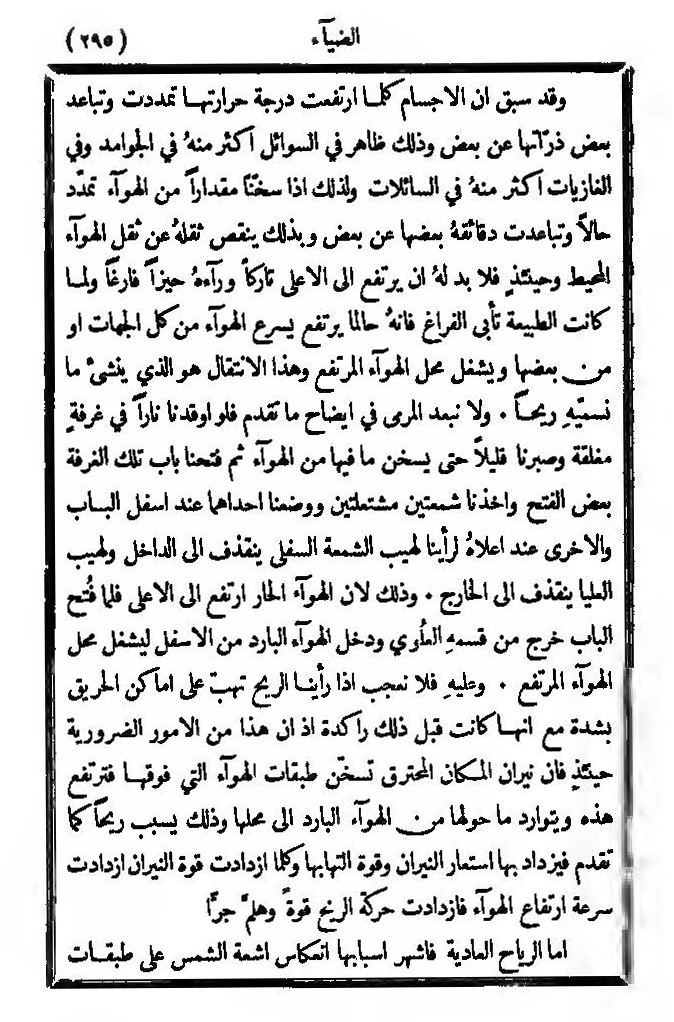 الضيآء (٢٩٥)
وقد سبق ان الاجسام كلما ارتفعت درجة حرارتها تمددت وتباعد
بعض ذرّاتها عن بعض وذلك ظاهر في السوائل اكثر منهُ في الجوامد وفي
الغازيات اكثر منهُ في السائلات ولذلك اذا سخنّا مقداراً من الهوآء تمدّد
حالاً وتباعدت دقائقهُ بعضها عن بعض وبذلك ينقص ثقلهُ عن ثقل الهوآء
المحيط وحينئذٍ فلا بد لهُ ان يرتفع الى الاعلى تاركاً ورآءهُ حيزاً فارغاً ولما
كانت الطبيعة تأبى الفراغ فانهُ حالما يرتفع يسرع الهوآء من كل الجهات او
من بعضها ويشغل محل الهوآء المرتفع وهذا الانتقال هو الذي ينشئ ما
نسميّهِ ريحاً ٠ ولا نبعد المرمى في ايضاح ما تقدم فلو اوقدنا ناراً في غرفةٍ
مغلقة وصبرنا قليلاً حتى يسخن ما فيها من الهوآء ثم فتحنا باب تلك الغرفة
بعض الفتح واخذنا شمعتين مشتعلتين ووضعنا احداهما عند اسفل الباب
والاخرى عند اعلاهُ لرأينا لهيب الشمعة السفلى ينقذف الى الداخل ولهيب
العليا ينقذف الى الخارج ٠ وذلك لان الهوآء الحار ارتفع الى الاعلى فلما فُتح
الباب خرج من قسمهِ العلُوي ودخل الهوآء البارد من الاسفل ليشغل محل
الهوآء المرتفع ٠ وعليهِ فلا نعجب اذا رأينا الريح تهبّ على اماكن الحريق
بشدة مع انها كانت قبل ذلك راكدة اذ ان هذا من الامور الضرورية
حينئذٍ فان نيران المكان المحترق تسخّن طبقات الهوآء التي فوقها فترتفع
هذه ويتوارد ما حولها من الهوآء البارد الى محلها وذلك يسبب ريحاً كما
تقدم فيزداد بها استعار النيران وقوة التهابها وكلما ازدادت قوة النيران ازدادت
سرعة ارتفاع الهوآء فازدادت حركة الريح قوةً وهلمَّ جرًّا
اما الرياح العادية فاشهر اسبابها انعكاس اشعة الشمس على طبقات